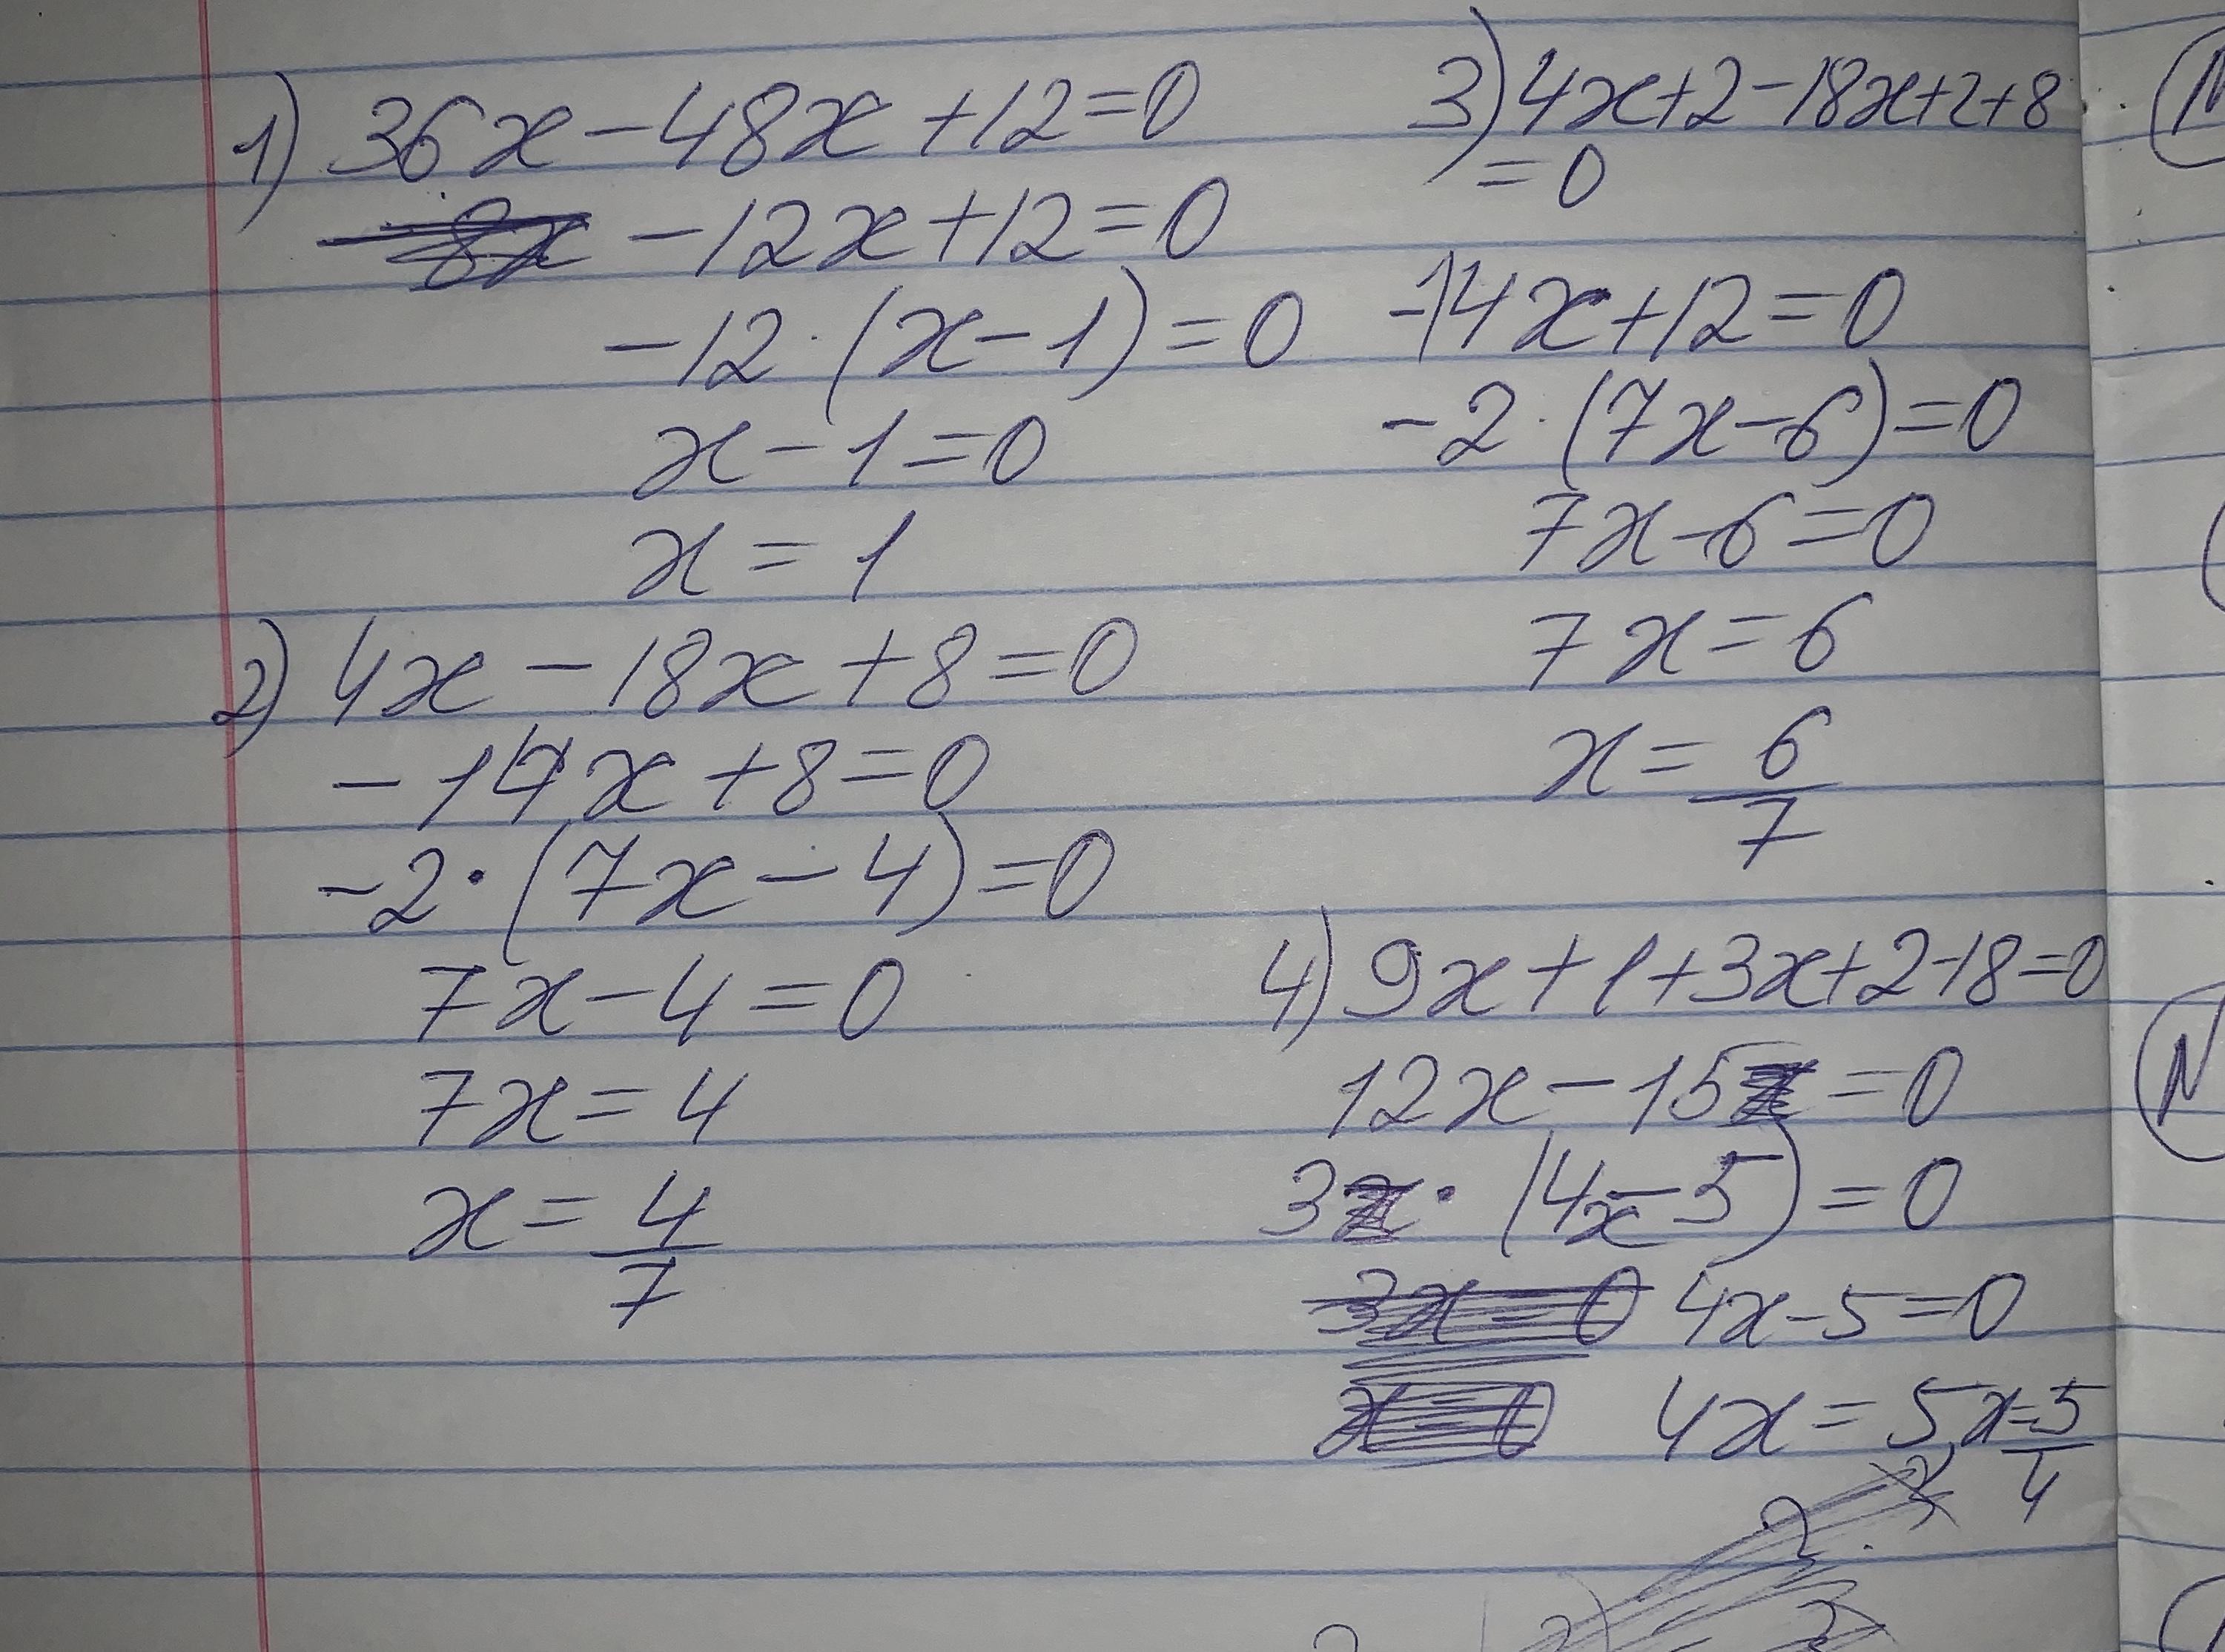 1) 36x - 48x + 12 = 0
-12x + 12 = 0
-12 · (x - 1) = 0
x - 1 = 0
x = 1
2) 4x - 18x + 8 = 0
-14x + 8 = 0
-2 · (7x - 4) = 0
7x - 4 = 0
7x = 4
x = 4/7
3) 4x + 2 - 18x + 2 + 8
= 0
-14x + 12 = 0
-2 · (7x - 6) = 0
7x - 6 = 0
7x = 6
x = 6/7
4) 9x + 1 + 3x + 2 - 18 = 0
12x - 15 = 0
3 · (4x - 5) = 0
4x - 5 = 0
4x = 5 x = 5/4